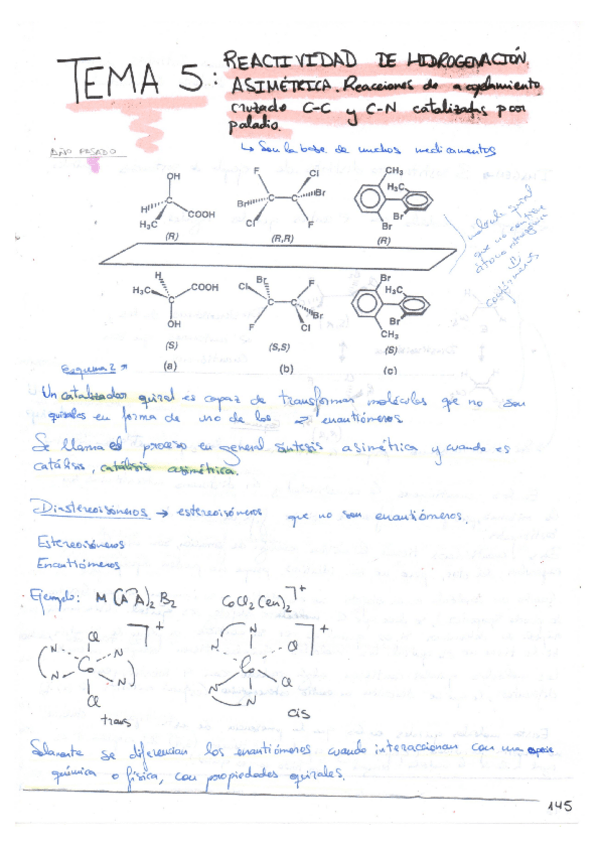 TEMA 5: REACTIVIDAD DE HIDROGENACIÓN
ASIMÉTRICA. Reacciones de acoplamiento
cruzado C-C y C-N catalizadas por
paladio.
↳ Son la base de muchos medicamentos
AÑO PASADO
OH F Cl CH₃
H Br Br H₃C
H₃C COOH Cl F Br Br
(R) (R,R) (R)
molécula quiral
que no contiene
átomo
H Br F Br
H₃C COOH Cl Br H₃C
OH F Cl Br CH₃
(S) (S,S) (S)
Esquema 2 (a) (b) (c)
Un catalizador quiral es capaz de transformar moléculas que no son
quirales en forma de uno de los 2 enantiómeros
Se llama el proceso en general síntesis asimétrica y cuando es
catálisis, catálisis asimétrica.
Diastereoisómeros → estereoisómeros que no son enantiómeros.
Estereoisómeros
Enantiómeros
Ejemplo: M(A A)₂B₂ CoCl₂(en)₂ ⁺
Cl ⁺ N ⁺
N N N Cl
Co Co
N N N Cl
Cl N
trans cis
Solamente se diferencian los enantiómeros cuando interaccionan con una
química o física, con propiedades quirales.
145